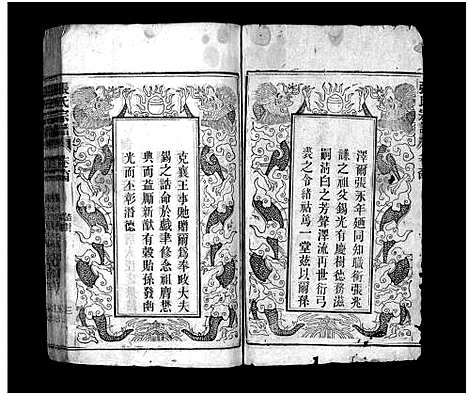 澤爾張永年廼同知職銜張兆
謙之祖父錫光有慶樹德務滋
嗣清白之芳聲澤流再世衍弓
裘之令緒祜萬一堂茲以爾孫
克襄王事貤贈爾為奉政大夫
錫之誥命於戲聿修念祖膺懋
典而益勵新猷有穀貽孫發幽
光而丕彰潛德
張氏宗譜